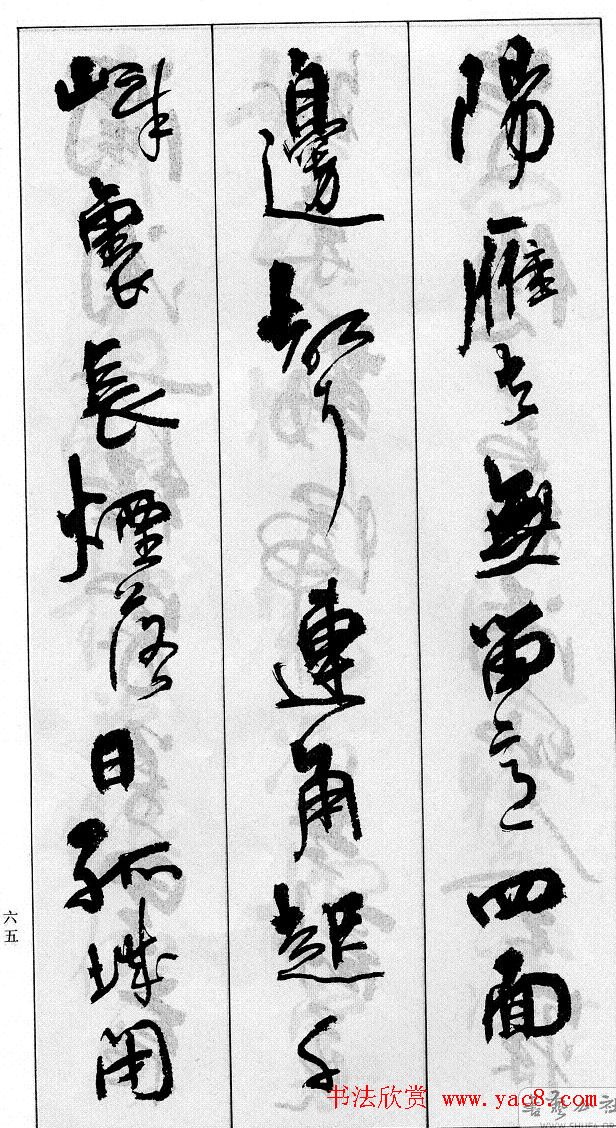 陽雁去無留意四面
邊聲連角起千
嶂裏長煙落日孤城閉
六五
书法欣赏 www.yac8.com